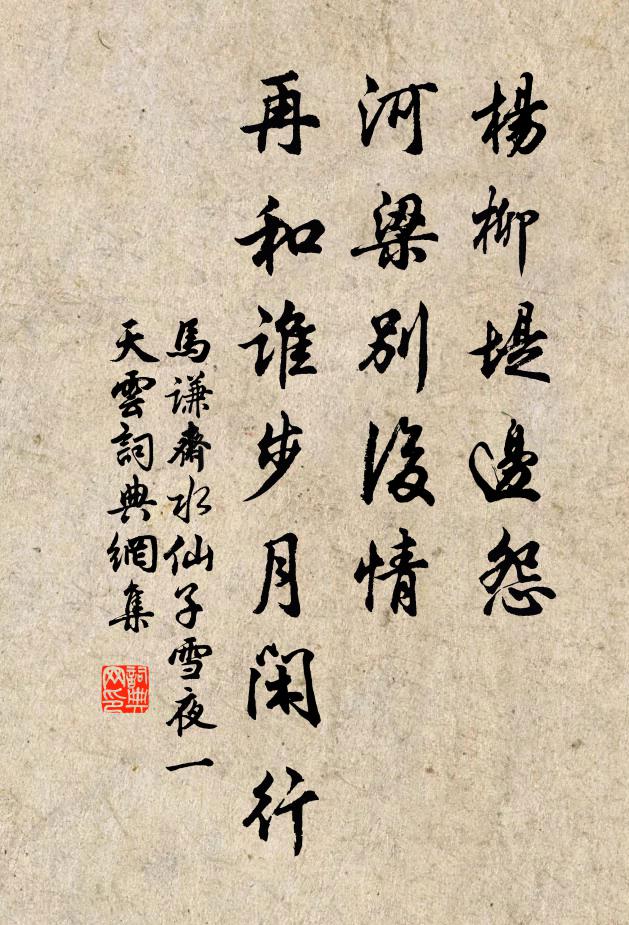 楊柳堤邊怨
河梁別後情
再和誰步月閑行
馬謙齋水仙子雪夜一
天雲詞典網集
詞典網印